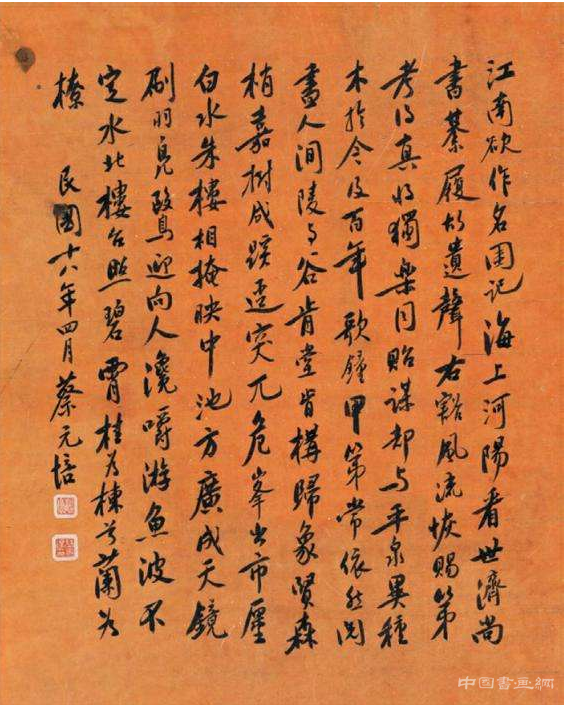 江南欲作名園記海上河陽看世濟尚
書綦履遺聲右豁風流恢賜第
考得真将獨樂同貽謀却与平泉異種
木於今及百年歌鐘甲第常依然閱
盡人间陵与谷肯堂肯構歸象賢森
梢嘉樹成蹊逕突兀危峯出市廛
白水朱樓相掩映中池方廣成天鏡
刷羽鳧鷖迎向人瀺嚼游魚波不
定水北樓台照碧霄桂为棟兮蘭为
橑
民國十八年四月蔡元培
中国書画網